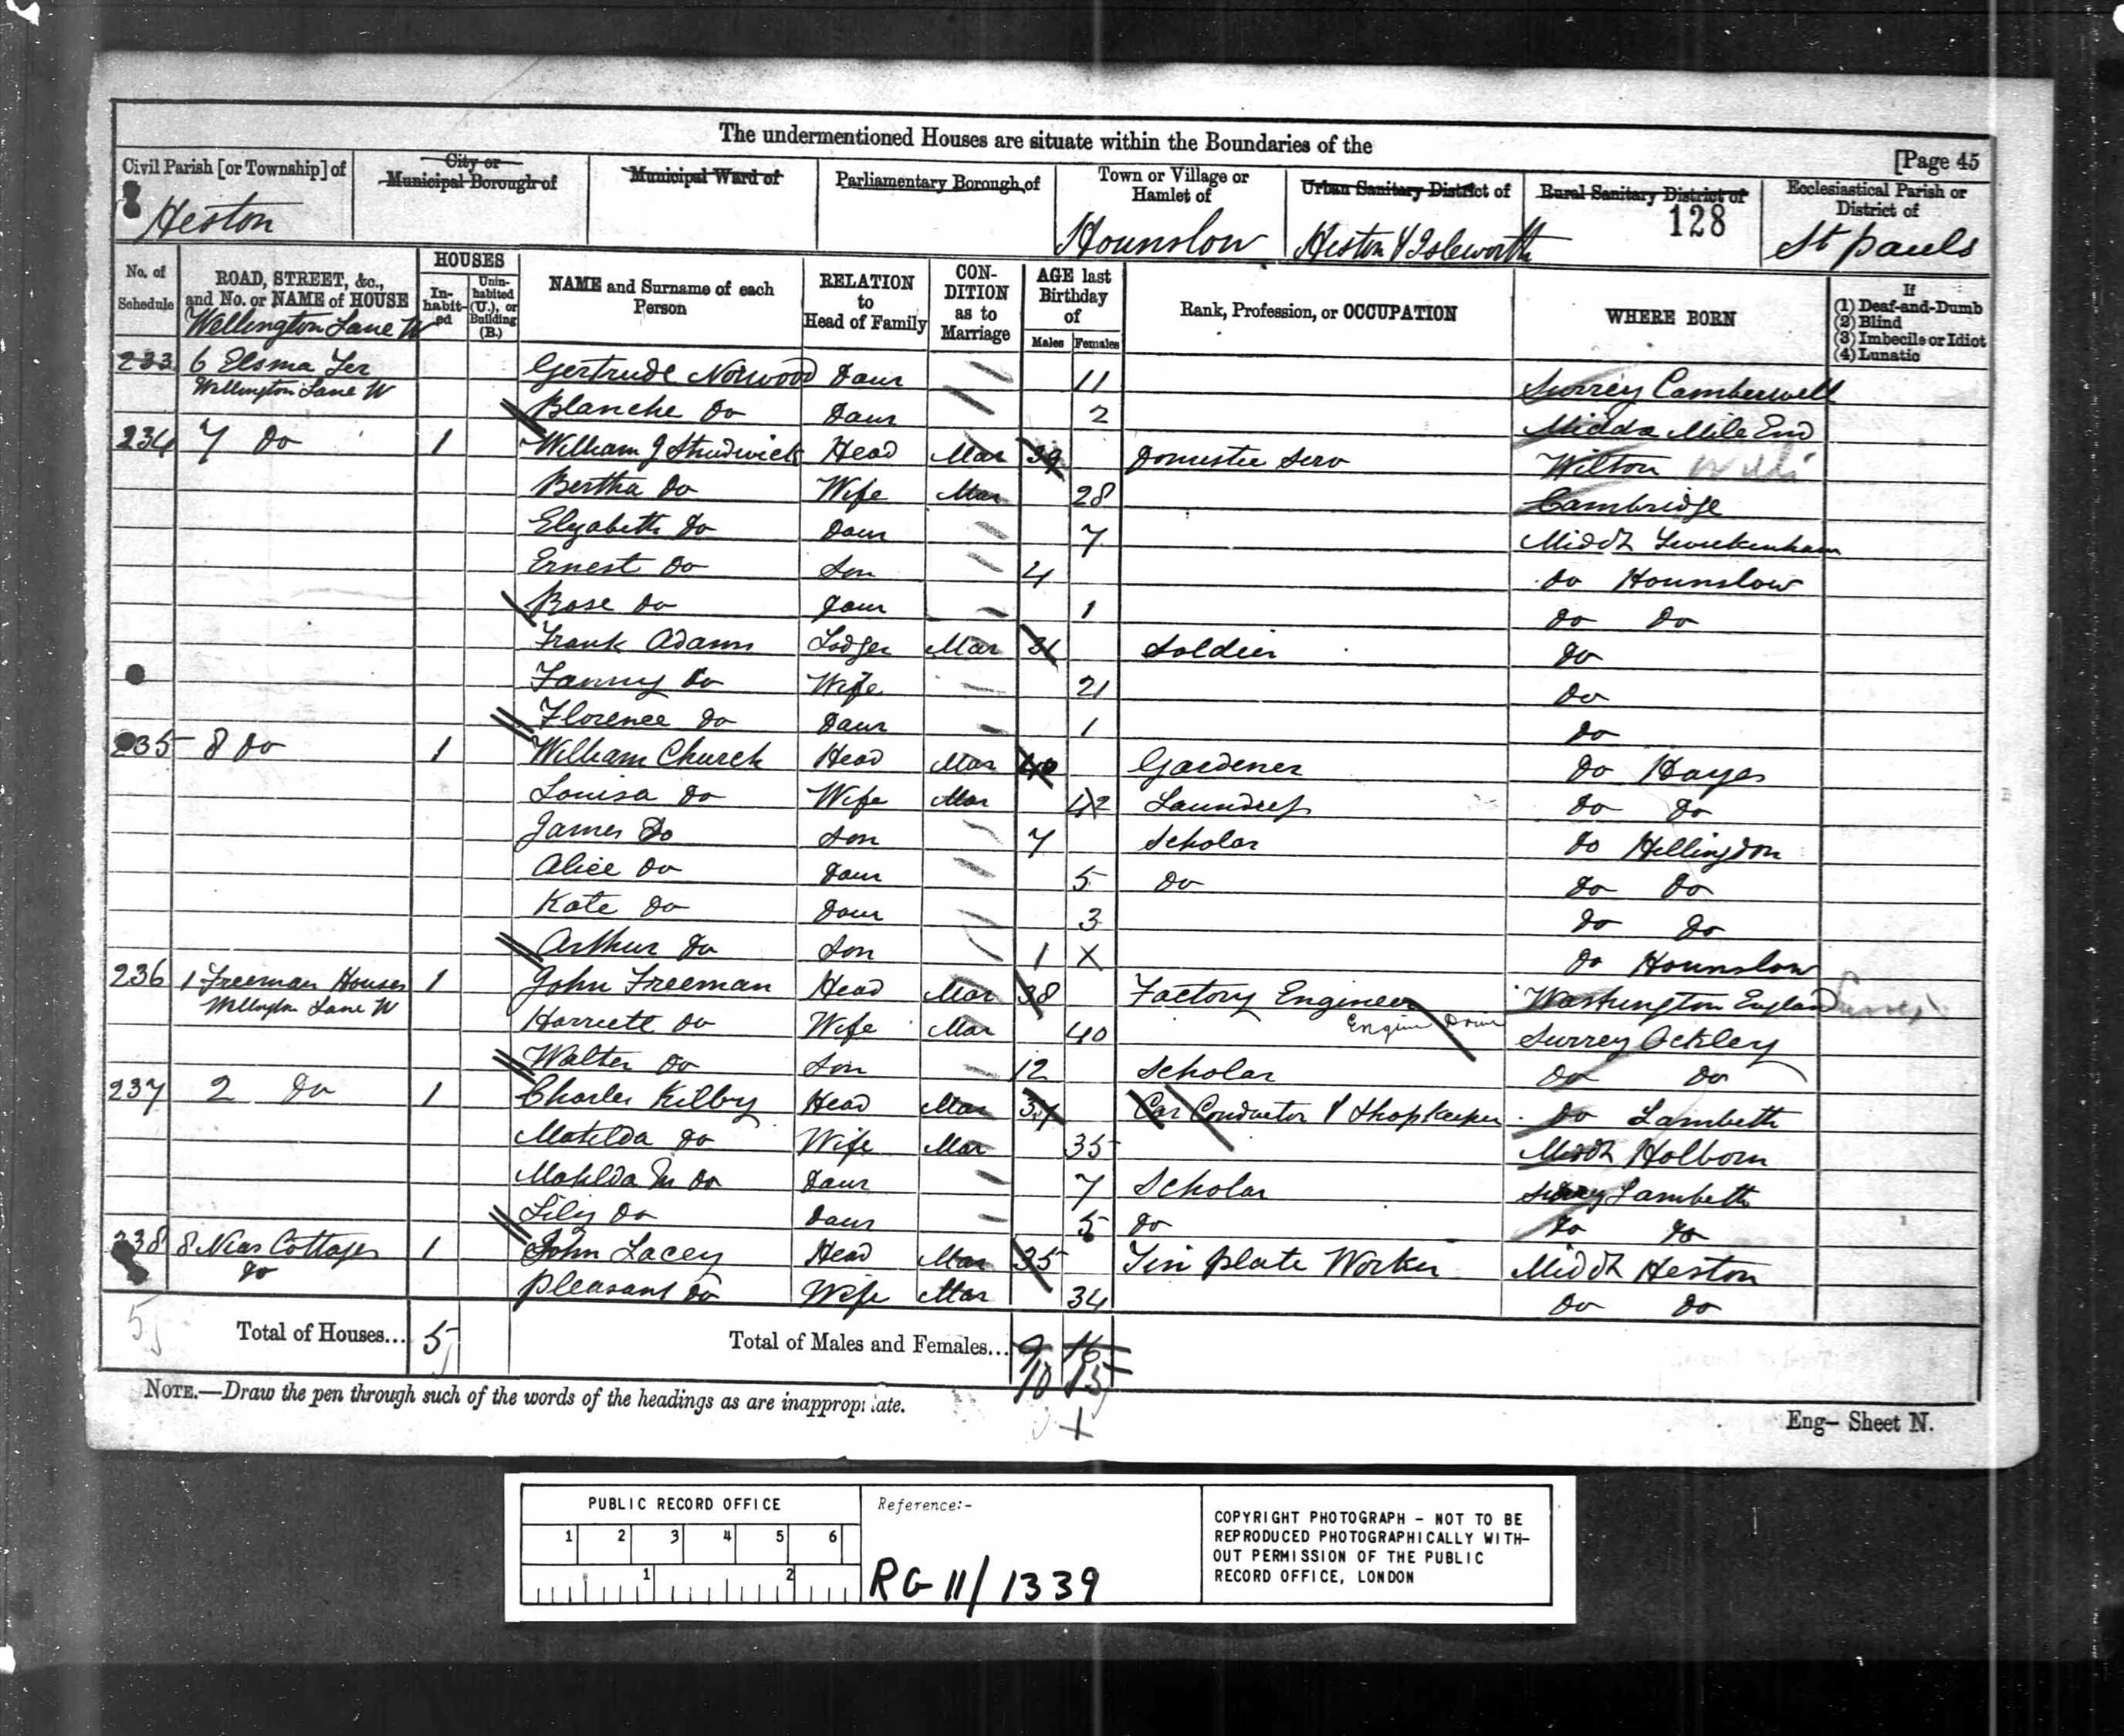 The undermentioned Houses are situate within the Boundaries of the
[Page 45
Civil Parish [or Township] of
City or
Municipal Borough of
Municipal Ward of
Parliamentary Borough of
Town or Village or
Hamlet of
Urban Sanitary District of
Rural Sanitary District of
Ecclesiastical Parish or
District of
Heston
Hounslow
Heston & Isleworth
128
St Pauls
No. of
Schedule
ROAD, STREET, &c.,
and No. or NAME of HOUSE
HOUSES
In-
habit-
ed
Unin-
habited
(U.), or
Building
(B.)
NAME and Surname of each
Person
RELATION
to
Head of Family
CON-
DITION
as to
Marriage
AGE last
Birthday
of
Males
Females
Rank, Profession, or OCCUPATION
WHERE BORN
If
(1) Deaf-and-Dumb
(2) Blind
(3) Imbecile or Idiot
(4) Lunatic
Wellington Lane W
233 6 Elsma Ter Gertrude Norwood Daur 11 Surrey Camberwell
Wellington Lane W
Blanche Do Daur 2 Middx Mile End
234 7 Do 1 William J Strudwick Head Mar 39 Domestic Serv Wilton Wilts
Bertha Do Wife Mar 28 Cambridge
Elizabeth Do Daur 7 Middx Twickenham
Ernest Do Son 4 Do Hounslow
Rose Do Daur 1 Do Do
Frank Adams Lodger Mar 31 Soldier Do
Fanny Do Wife 21 Do
Florence Do Daur 1 Do
235 8 Do 1 William Church Head Mar 40 Gardener Do Hayes
Louisa Do Wife Mar 42 Laundress Do Do
James Do Son 7 Scholar Do Hillingdon
Alice Do Daur 5 Do Do Do
Kate Do Daur 3 Do Do
Arthur Do Son 1 X Do Hounslow
236 1 Freeman Houses 1 John Freeman Head Mar 38 Factory Engineer Washington England Sussex
Wellington Lane W
Engine Driver
Harriett Do Wife Mar 40 Surrey Ockley
Walter Do Son 12 Scholar Do Do
237 2 Do 1 Charles Kilby Head Mar 37 Car Conductor & Shopkeeper Do Lambeth
Matilda Do Wife Mar 35 Middx Holborn
Matilda M Do Daur 7 Scholar Surrey Lambeth
Lily Do Daur 5 Do Do Do
238 8 Cottages 1 John Lacey Head Mar 35 Tin plate Worker Middx Heston
Do
Pleasant Do Wife Mar 34 Do Do
5
Total of Houses... 5
Total of Males and Females... 9 16
10 15
NOTE.—Draw the pen through such of the words of the headings as are inappropriate.
Eng— Sheet N.
PUBLIC RECORD OFFICE
1 2 3 4 5 6
1 2
Reference:-
RG 11/1339
COPYRIGHT PHOTOGRAPH - NOT TO BE
REPRODUCED PHOTOGRAPHICALLY WITH-
OUT PERMISSION OF THE PUBLIC
RECORD OFFICE, LONDON